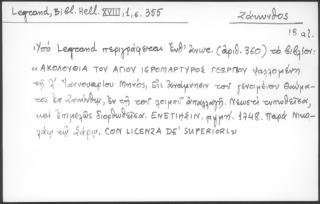 Legrand, Bibl. Hell. XVIII, 1, σ. 355
Ζάκυνθος
18 αἰ.
Ὑπὸ Legrand περιγράφεται ἐνθ' ἄνω (ἀριθ. 360) τὸ βιβλίον:
« ΑΚΟΛΟΥΘΙΑ ΤΟΥ ΑΓΙΟΥ ΙΕΡΟΜΑΡΤΥΡΟΣ ΓΕΩΡΓΙΟΥ ψαλλομένη
τῇ Ἰαννουαρίου Μηνός, εἰς ἀνάμνησιν τοῦ γενομένου θαύμα-
τος ἐν Ζακύνθῳ, ἐν τῇ τοῦ λοιμοῦ ἀπαλλαγῇ. Νεωστὶ τυπωθεῖσα,
καὶ ἐπιμελῶς διορθωθεῖσα. ΕΝΕΤΙΗΣΙΝ. αψμη΄. 1748. Παρὰ Νικο-
λάῳ τῷ Σάρῳ. CON LICENZA DE' SUPERIORI »